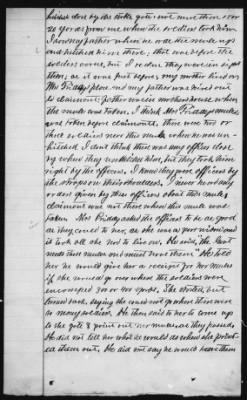 hitched close by the stable gate, not more than 20 or
30 yards from me, when the soldiers took him.
I saw my father when he rode the mule up
and hitched him there; that was before the
soldiers came, but I could see they were in sight
then; as it was just before, my mother lived on
Mrs Priddy's place and my father was hired out
to claimant. Father was in mother's house when
the mule was taken. I think Mrs Priddy's mules
was taken before claimants. There were two or
three soldiers near this mule when he was un-
hitched. I don't think there was any officer close
by when they unhitched him, but they took him
right by the officers. I knew they were officers by
the straps on their shoulders. I never heard any
orders given by these officers about this mule;
claimant was not there when this mule was
taken. Mrs Priddy asked the officers to be as good
as they could to her, as she was a poor widow and
it took all she had to live on. He said, "the Govt
needs these mules and must have them." He told
her he would give her a receipt for her mules
if she would go out where the soldiers were
encamped 300 or 400 yards. She started, but
turned back, saying she could not go where there were
so many soldiers. He then said to her to come up
to the gate & point out her mules as they passed.
He did not tell her what he would do when she point-
ed them out. He did not say he would have them